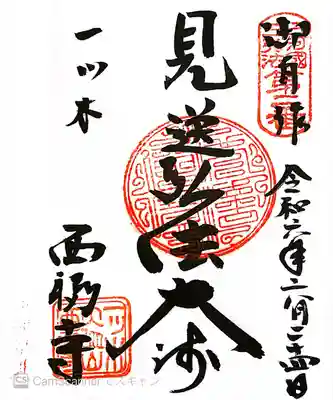 御自作
令和六年二月二十四日
見送弘法大師
一ツ木
西福寺
CS CamScanner でスキャン